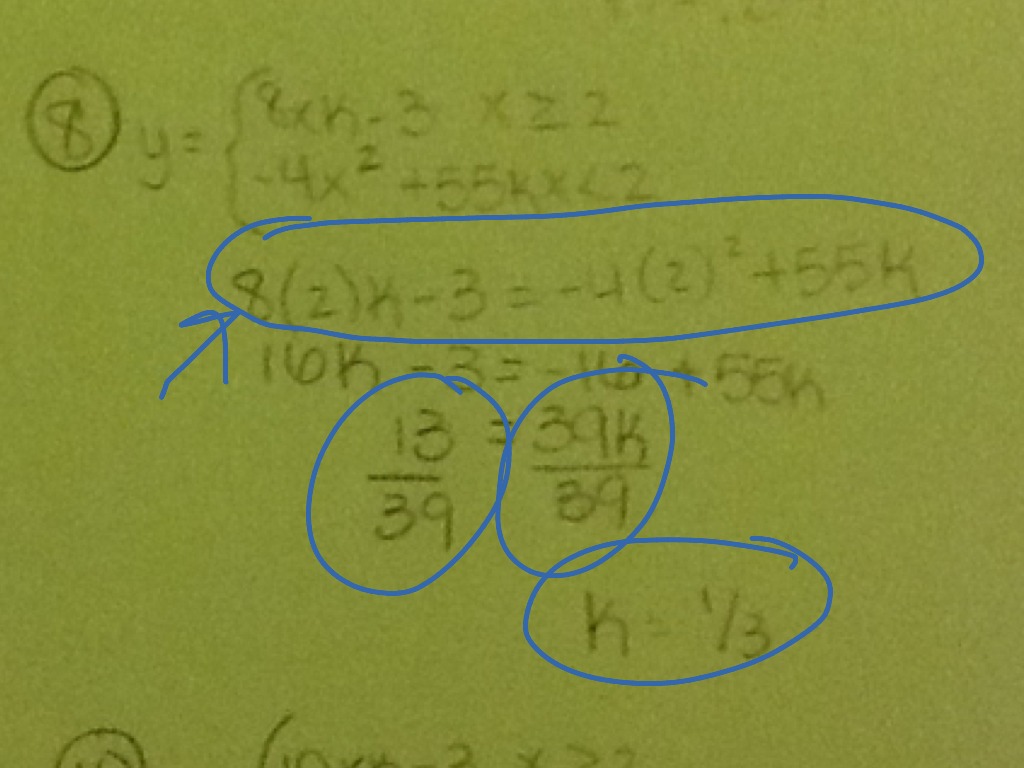 8 y = { 8xk - 3 x ≥ 2
-4x² + 55k x < 2
8(2)k - 3 = -4(2)² + 55k
16k - 3 = -16 + 55k
13 = 39k
39 39
k = 1/3